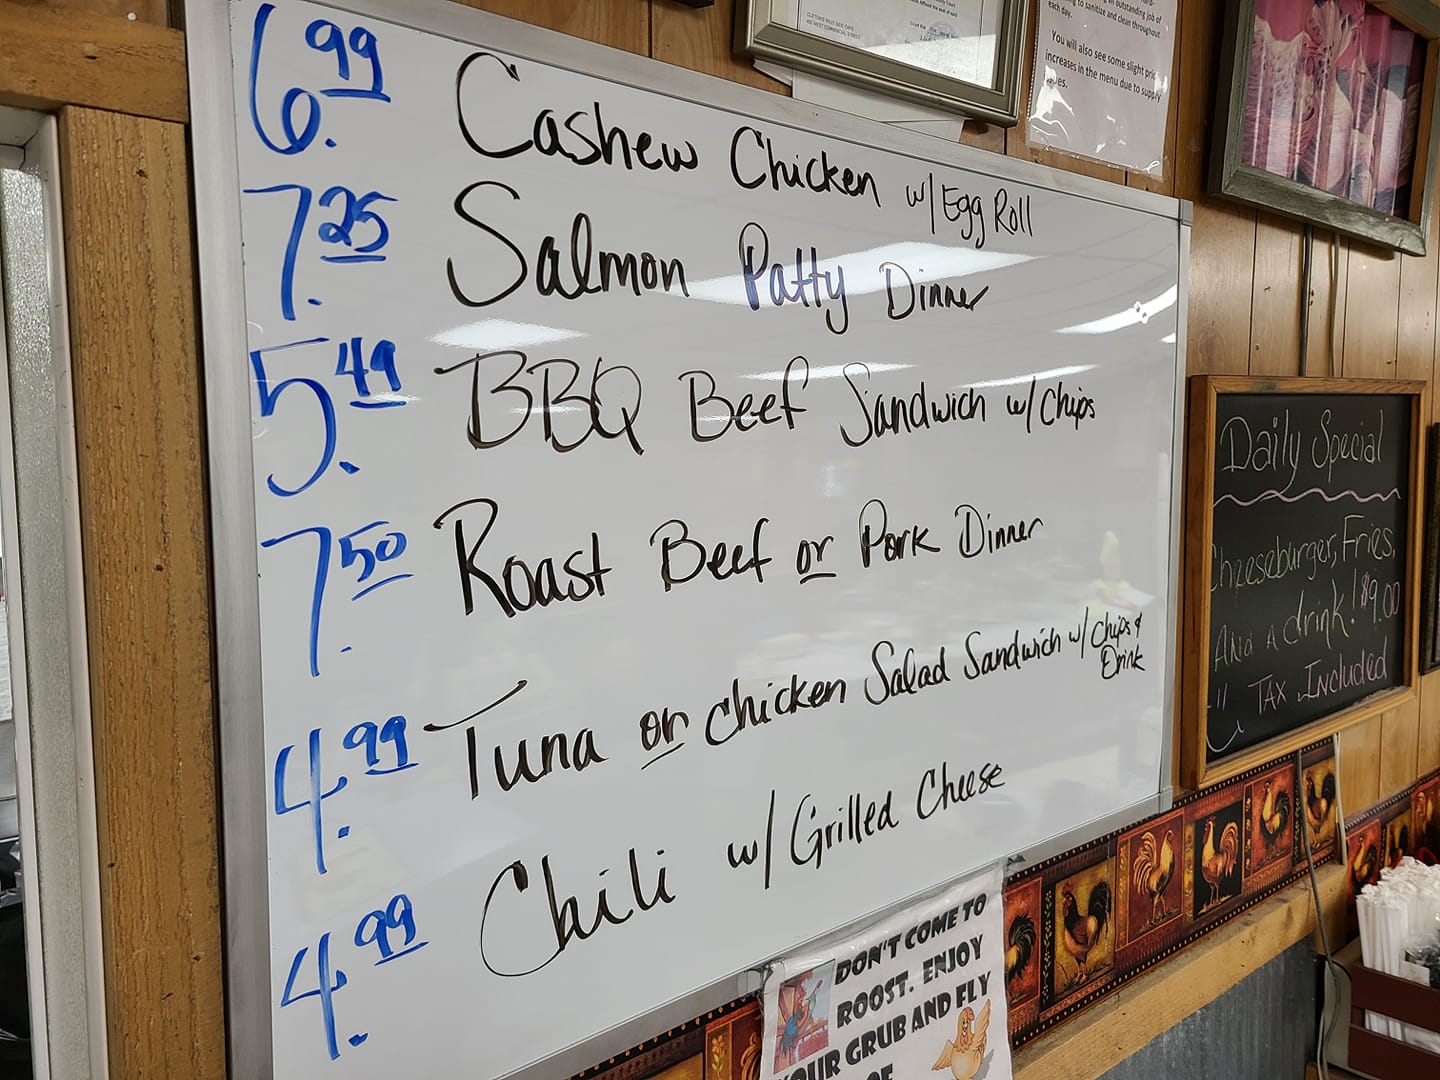 6.99 Cashew Chicken w/ Egg Roll
7.25 Salmon Patty Dinner
5.49 BBQ Beef Sandwich w/ Chips
7.50 Roast Beef or Pork Dinner
4.99 Tuna or Chicken Salad Sandwich w/ Chips &
Drink
4.99 Chili w/ Grilled Cheese
CLIFTON'S WEST SIDE CAFE
402 WEST COMMERCIAL STREET
an outstanding job of
to sanitize and clean throughout
each day.
You will also see some slight
increases in the menu due to supply
Daily Special
Cheeseburger, Fries,
And A drink! $9.00
TAX Included
DON'T COME TO
ROOST. ENJOY
YOUR GRUB AND FLY
OF